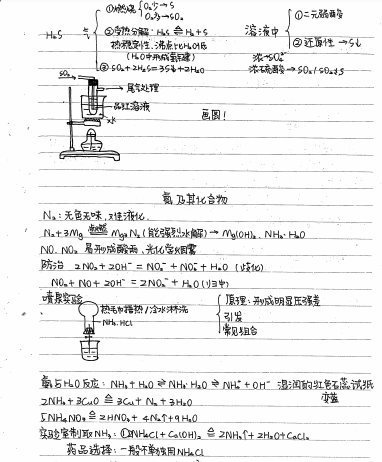 H₂S 气 ①燃烧 O₂少→S
O₂多→SO₂
②受热分解 H₂S ≙ H₂+S
热稳定性、沸点比H₂O低
(H₂O中形成氢键)
③SO₂+2H₂S=3S↓+2H₂O
溶液中 ①二元弱酸
②还原性→S↓
浓硫酸→SO₂/SO₂或S
SO₂
尾气处理
品红溶液
画图!
氮及其化合物
N₂:无色无味,难液化.
N₂+3Mg 点燃 Mg₃N₂(能强烈水解)→Mg(OH)₂、NH₃·H₂O
NO、NO₂易形成酸雨、光化学烟雾
防治 2NO₂+2OH⁻=NO₃⁻+NO₂⁻+H₂O(歧化)
NO₂+NO+2OH⁻=2NO₂⁻+H₂O(归中)
喷泉实验
热毛巾捂热/冷水淋洗
NH₃、HCl
原理:形成明显压强差
引发
常见组合
氨与H₂O反应:NH₃+H₂O⇌NH₃·H₂O⇌NH₄⁺+OH⁻ 湿润的红色石蕊试纸
变蓝
2NH₃+3CuO ≙ 3Cu+N₂+3H₂O
5NH₄NO₃ ≙ 2HNO₃+4N₂↑+9H₂O
实验室制取NH₃:①2NH₄Cl+Ca(OH)₂ ≙ 2NH₃↑+2H₂O+CaCl₂
药品选择:一般不单独用NH₄Cl